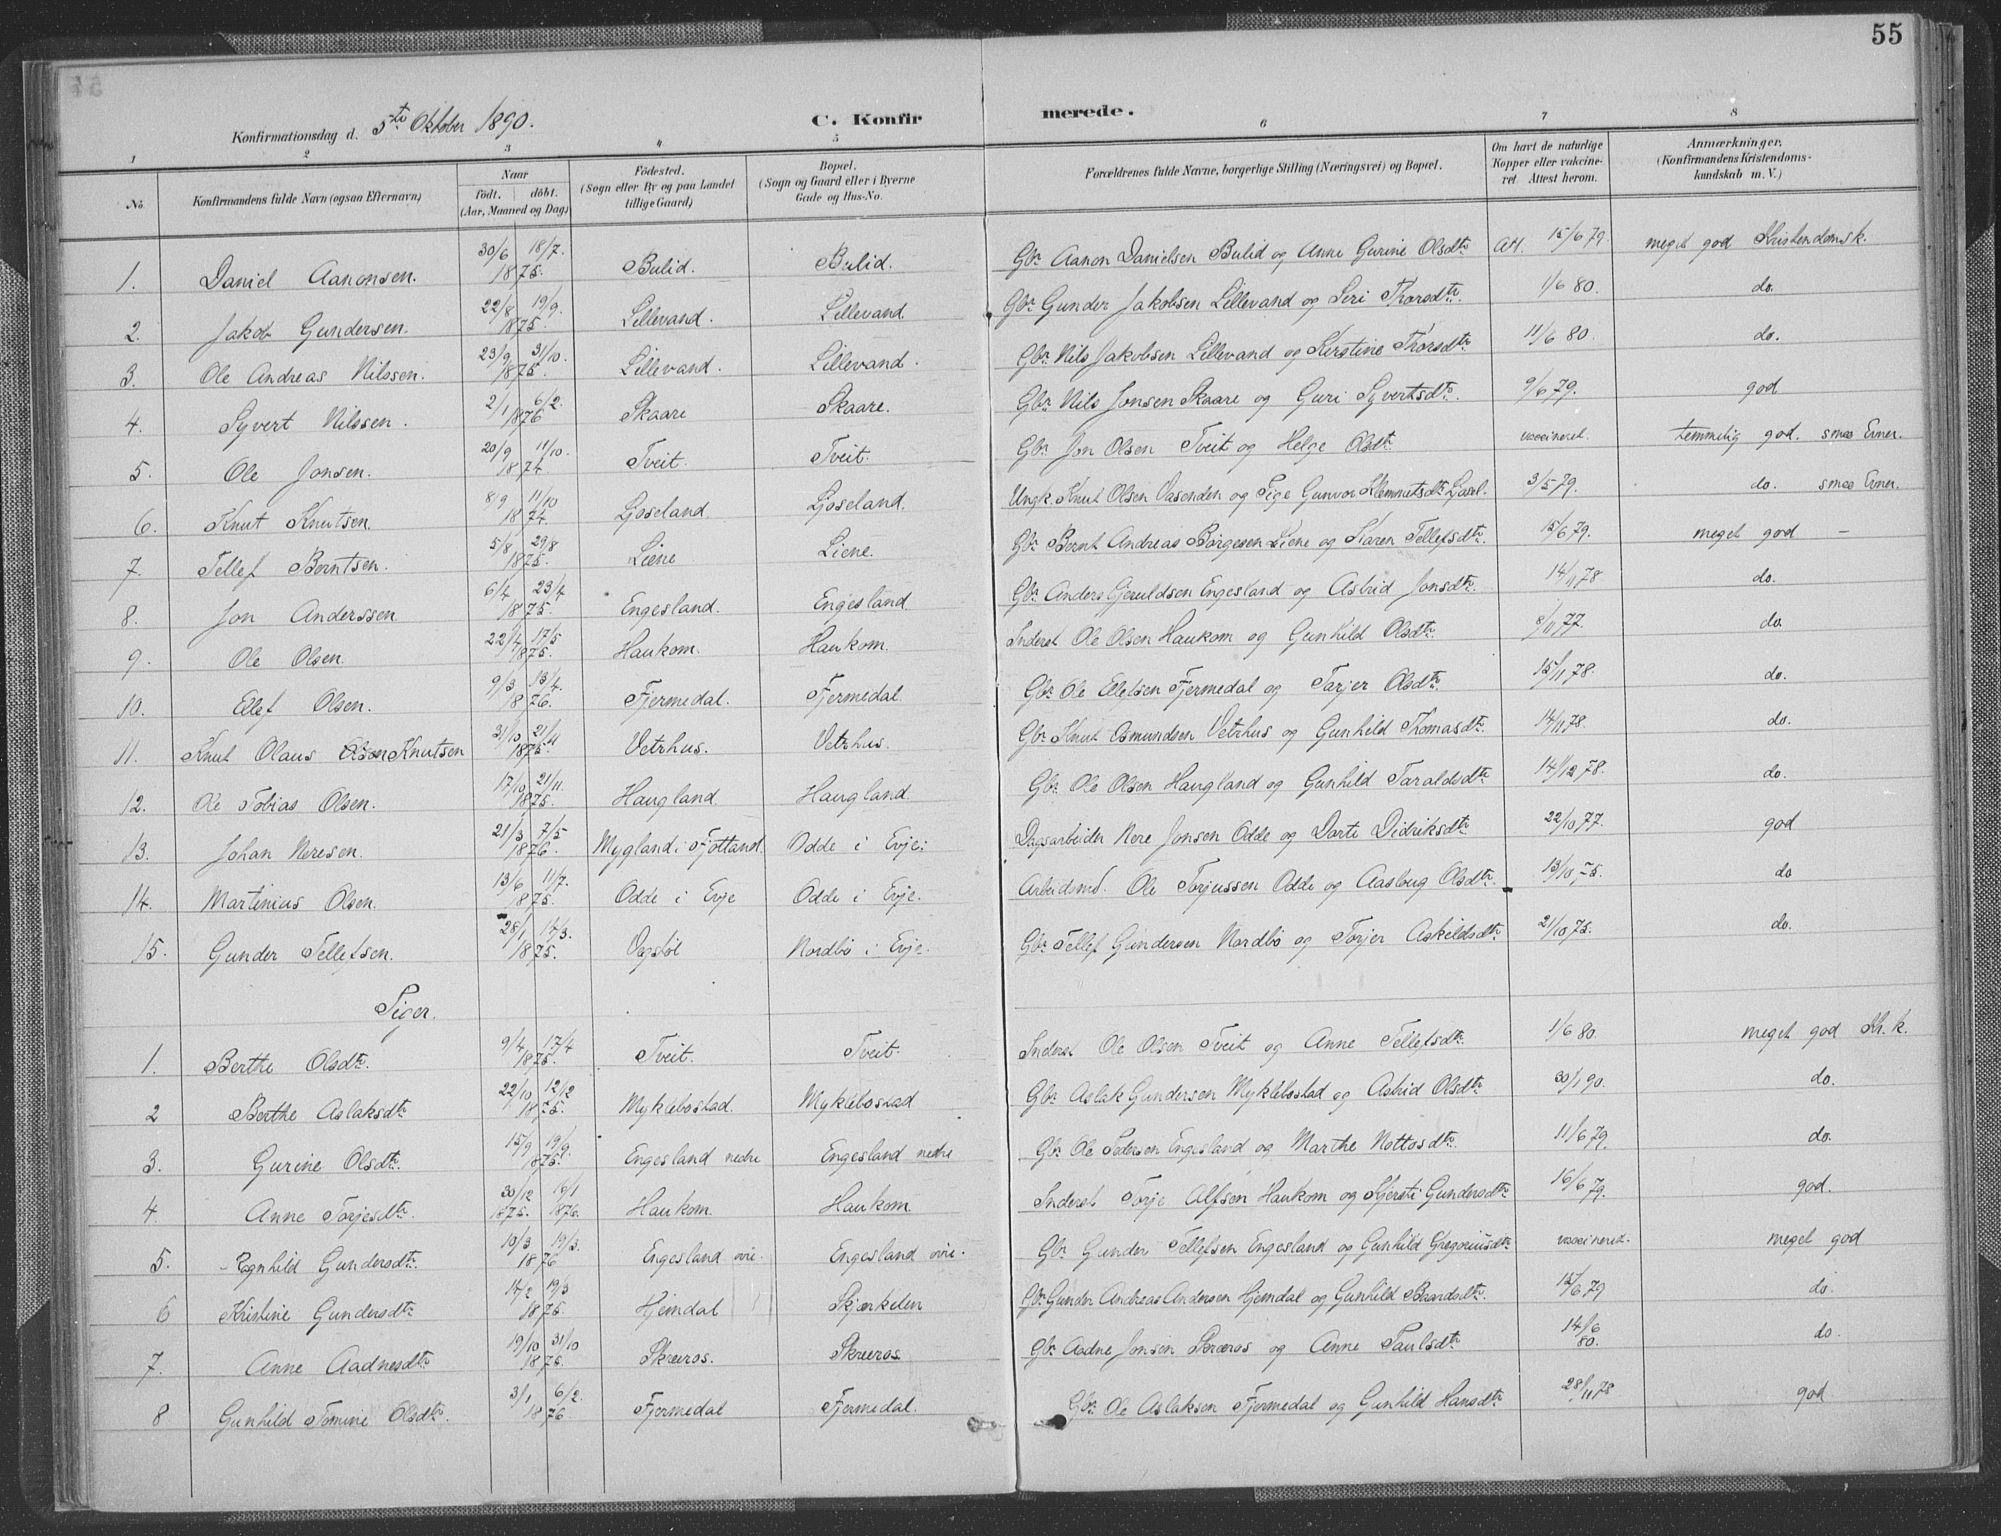 55
Konfirmationsdag d. 5te Oktober 1890. C. Konfirmerede.
1 2 3 4 5 6 7 8
No. Konfirmandens fulde Navn (ogsaa Efternavn) Naar födt. döbt. (Aar, Maaned og Dag) Födested. (Sogn eller By og paa Landet tillige Gaard) Bopæl. (Sogn og Gaard eller i Byerne Gade og Hus-No. Forældrenes fulde Navne, borgerlige Stilling (Næringsvei) og Bopæl. Om havt de naturlige Kopper eller vakcineret. Attest herom. Anmærkninger. (Konfirmandens Kristendomskundskab m. V.)
1. Daniel Aanonsen. 30/6 18/7. 1875. Bulid. Bulid. Gbr. Aanon Danielsen Bulid og Anne Gurine Olsdtr. Att. 15/6 79. meget god Kristendomsk.
2. Jakob Gundersen. 22/8 19/9. 1875. Lillevand. Lillevand. Gbr. Gunder Jakobsen Lillevand og Siri Thorsdtr. 1/6 80. do.
3. Ole Andreas Nilssen. 23/9 31/10. 1875. Lillevand. Lillevand. Gbr. Nils Jakobsen Lillevand og Kirstine Thorsdtr. 11/6 80. do.
4. Syvert Nilssen. 2/1 6/2. 1876 Skaare Skaare. Gbr. Nils Jonsen Skaare og Guri Syvertsdtr. 9/6 79. god
5. Ole Jonsen. 20/9 11/10. 1874. Tveit. Tveit. Gbr. Jon Olsen Tveit og Helge Olsdtr. vaccineret. temmelig god. smaa Evner.
6. Knut Knutsen. 8/9 11/10 1874. Ljoseland. Ljoseland. Ungk. Knut Olsen Vasenden og Pige Gunvor Klemmetsdtr. Ljosel. 3/5 79. do. smaa Evner.
7. Tellef Berntsen. 5/8 29/8 1875. Liene Liene. Gbr. Bernt Andreas Börgesen Liene og Karen Tellefsdtr. 15/6 79. meget god –
8. Jon Anderssen. 6/4 23/4 1875. Engesland. Engesland Gbr. Anders Gjeruldsen Engesland og Astrid Jonsdtr. 14/11 78 do.
9. Ole Olsen. 22/4 17/5 1875. Haukom. Haukom. Inderst Ole Olsen Haukom og Gunhild Olsdtr. 8/11 77. do.
10. Ellef Olsen. 9/3 13/4. 1876. Fjermedal. Fjermedal. Gbr. Ole Ellefsen Fjermedal og Tarjer Olsdtr. 15/11 78. do.
11. Knut Olaus Olsen Knutsen 31/10 21/11 1875. Vetrhus. Vetrhus. Gbr. Knut Osmundsen Vetrhus og Gunhild Thomasdtr. 14/11 78. do.
12. Ole Tobias Olsen. 17/10 21/11. 1875. Haugland Haugland. Gbr. Ole Olsen Haugland og Gunhild Taraldsdtr. 14/12 78. do.
13. Johan Neresen. 21/3 7/5 1876. Mygland i Fjotland. Odde i Evje. Dagsarbeider Nere Jonsen Odde og Dorte Didriksdtr. 22/10 77. god
14. Martinius Olsen. 13/6 11/7. 1875. Odde i Evje Odde i Evje. Arbeidsmd. Ole Torjussen Odde og Aasloug Olsdtr. 13/10 75. do
15. Gunder Tellefsen. 28/1 14/3. 1875. Nordbö i Evje. Gbr. Tellef Gundersen Nordbö og Torjer Askildsdtr. 21/10 75. do.
Piger.
1. Berthe Olsdtr. 9/4 17/4 1875. Tveit. Tveit. Inderst Ole Olsen Tveit og Anne Tellefsdtr. 1/6 80. meget god Kr. k.
2 Berthe Aslaksdtr. 22/10 12/12 1875. Myklebostad. Myklebostad Gbr. Aslak Gundersen Myklebostad og Astrid Olsdtr. 30/1 90. do.
3. Gurine Olsdtr. 15/9 19/9. 1875. Engesland nedre Engesland nedre Gbr. Ole Pedersen Engesland og Marthe Nottosdtr. 11/6 79. do.
4. Anne Torjesdtr. 30/12 1875. 19/1 1876. Haukom. Haukom. Inderst Torje Alfsen Haukom og Kjersti Gundersdtr. 16/6 79. god.
5. Egnhild Gundersdtr. 10/3 19/3. 1876 Engesland övre. Engesland övre. Gbr. Gunder Tellefsen Engesland og Gunhild Gregoriusdtr. vaccineret. meget god
6 Kristine Gundersdtr. 14/2 19/3 1875. Hjemdal Skjærkelen Gbr. Gunder Andreas Andersen Hjemdal og Gunhild Baardsdtr. 15/6 79 do.
7. Anne Aadnesdtr. 19/10 31/10 1875. Skreros. Skreros Gbr. Aadne Jonsen Skreros og Anne Paulsdtr. 14/6 80. do.
8 Gunhild Tomine Olsdtr. 3/1 6/2. 1876 Fjermedal Fjermedal. Gbr. Ole Aslaksen Fjermedal og Gunhild Hansdtr. 28/11 78 god